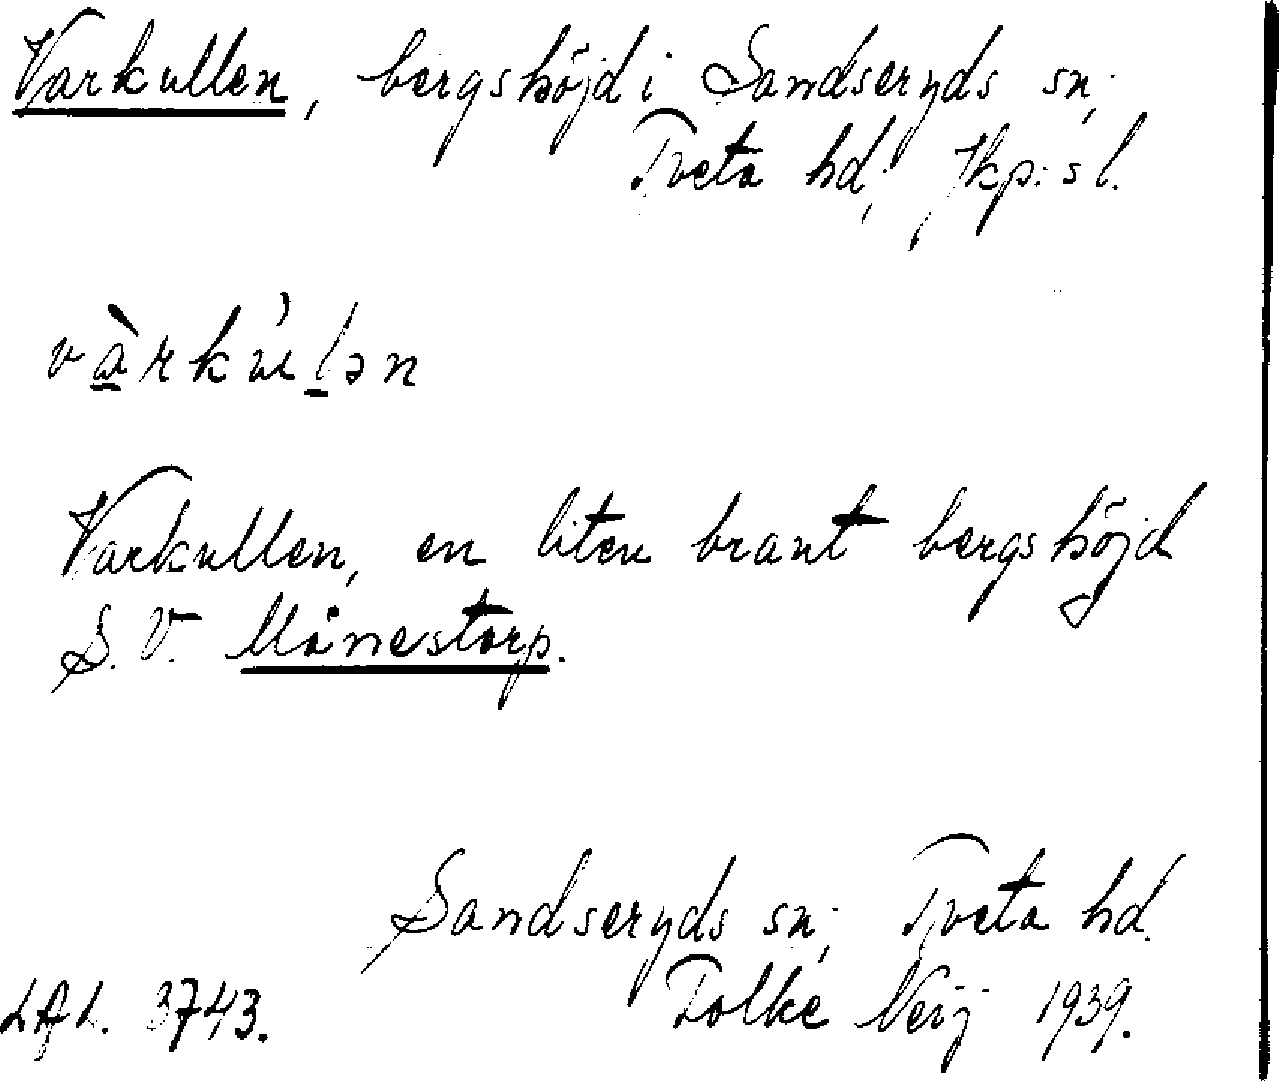 Varkullen, bergshöjd i Sandseryds sn,
Tveta hd, Jkp:s l.
vàrku̍lən
Varkullen, en liten brant bergshöjd
S.V. Månestorp.
Sandseryds sn, Tveta hd.
LAL. 3743. Folke Neij 1939.